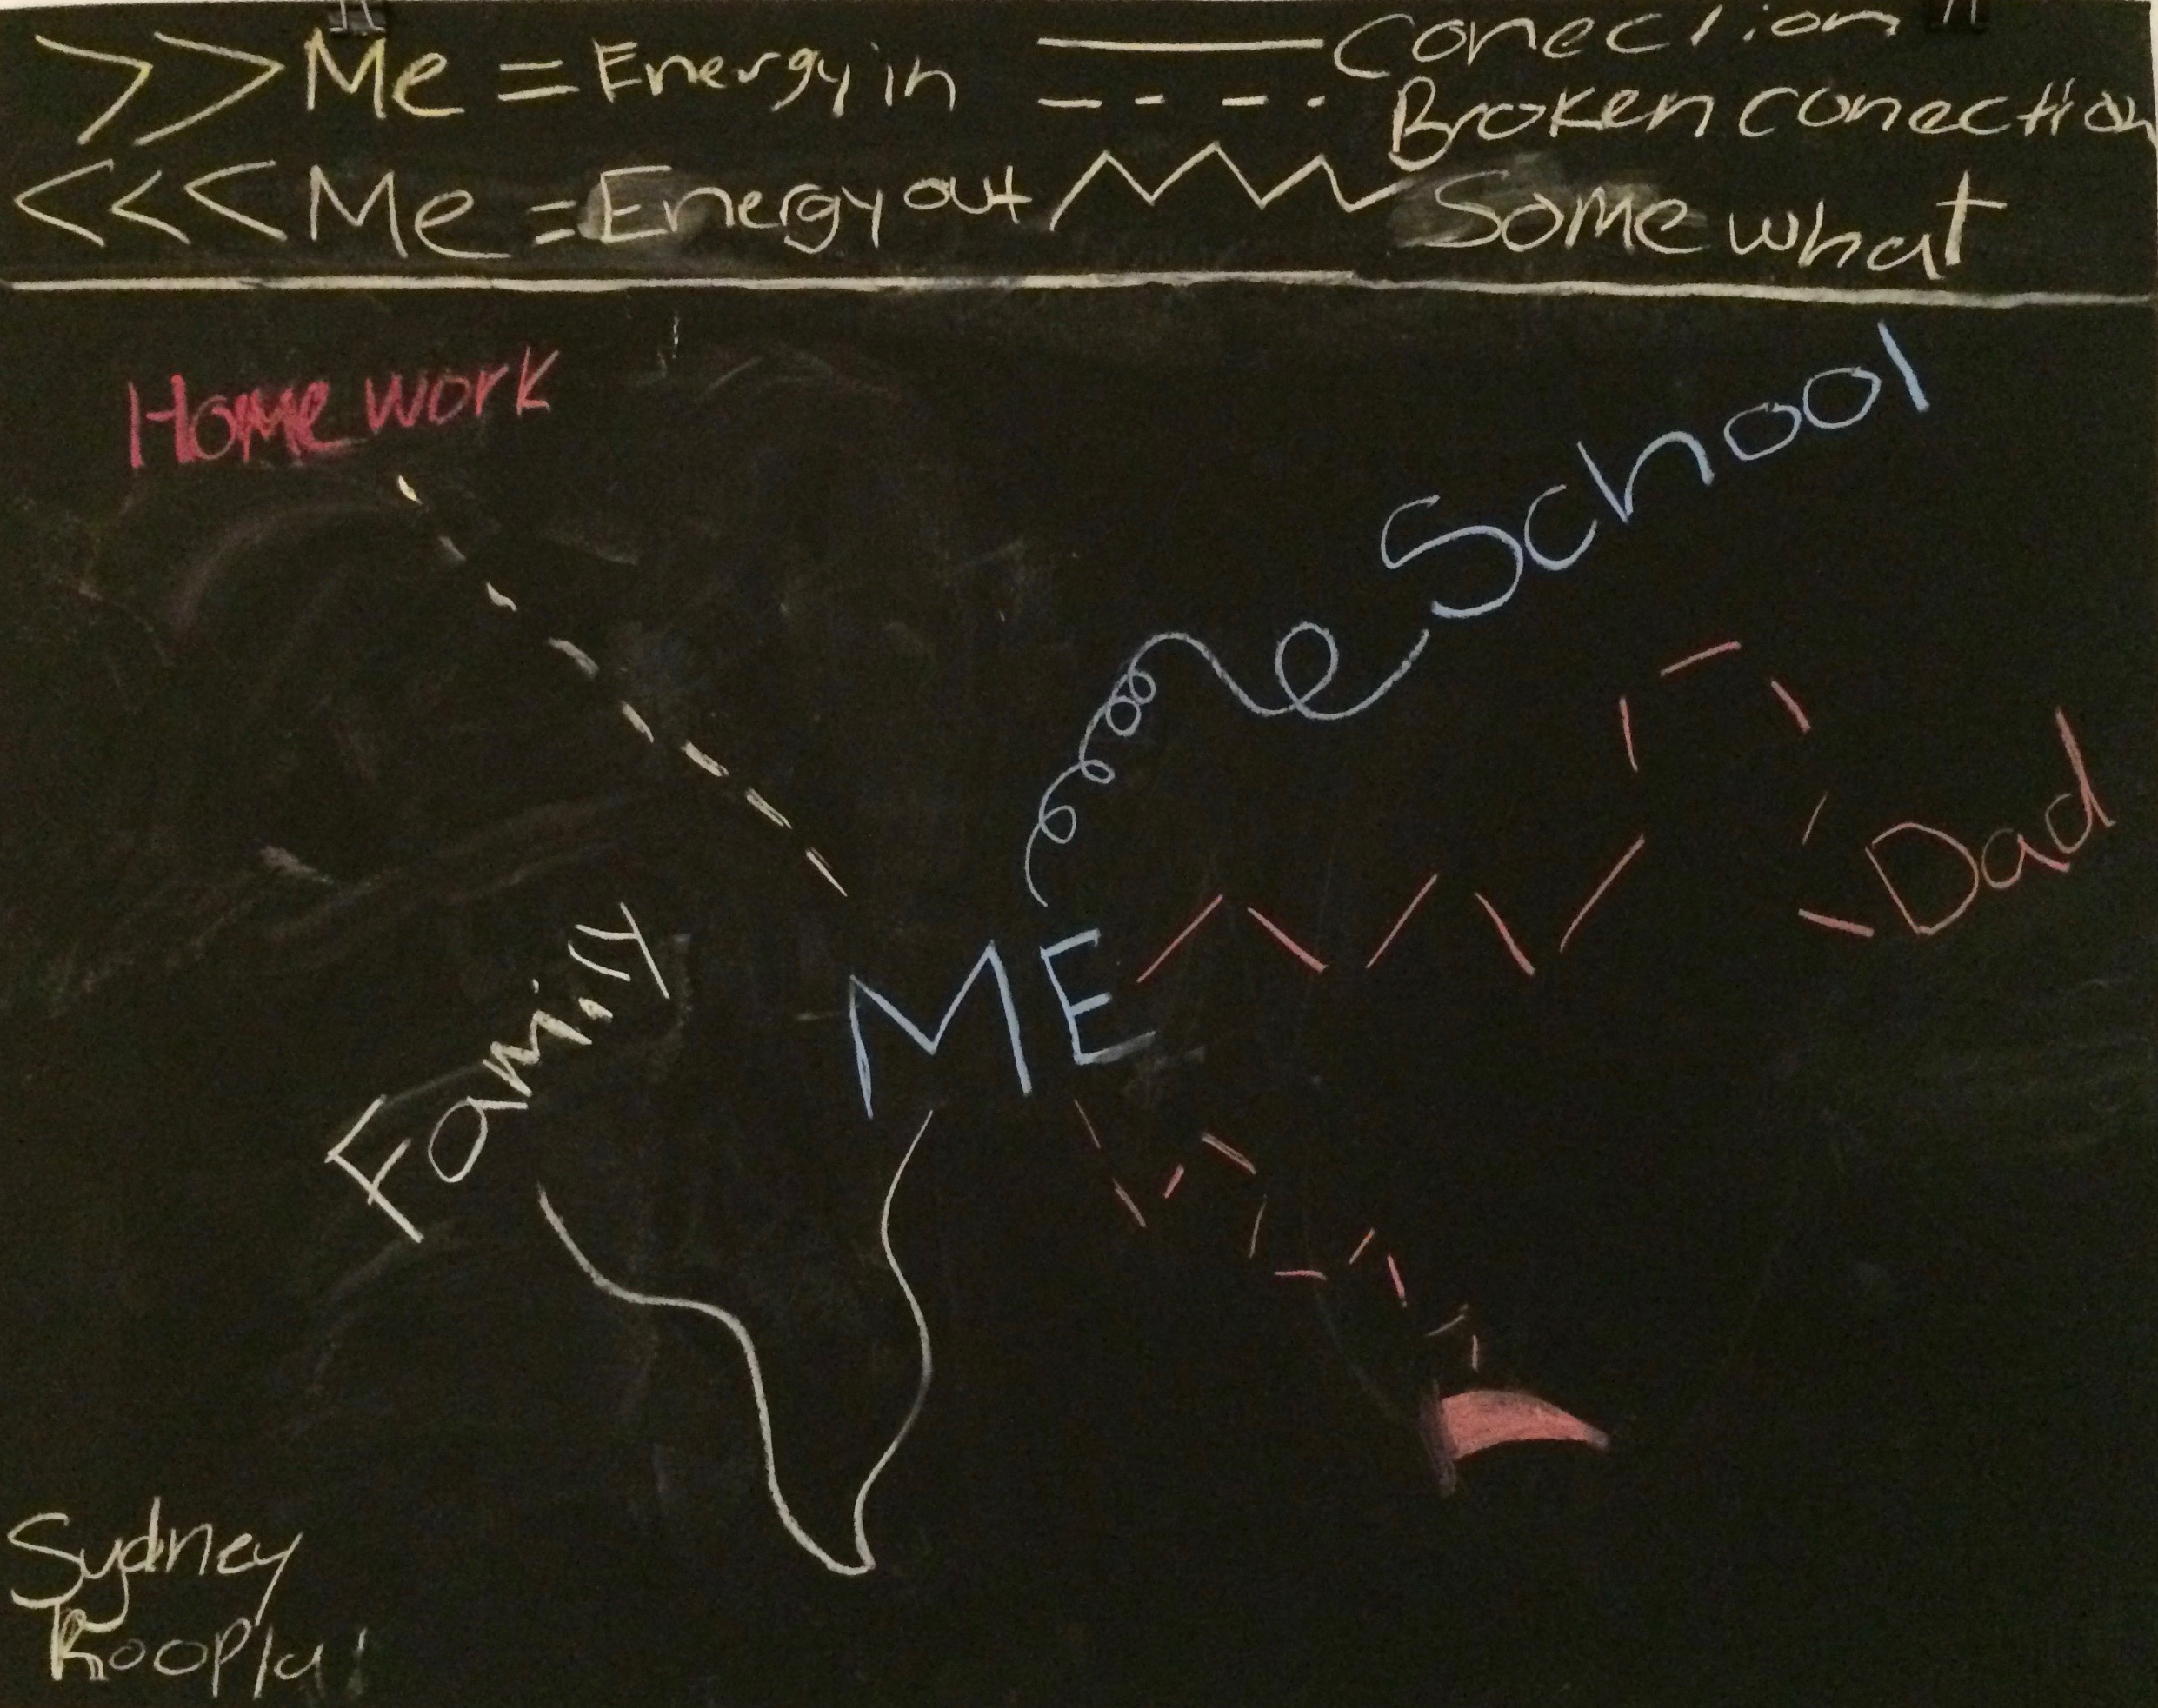 >>Me = Energy in
<<<Me = Energy out
Conection
Broken conection
Somewhat
Homework
School
Dad
Family
ME
Sydney